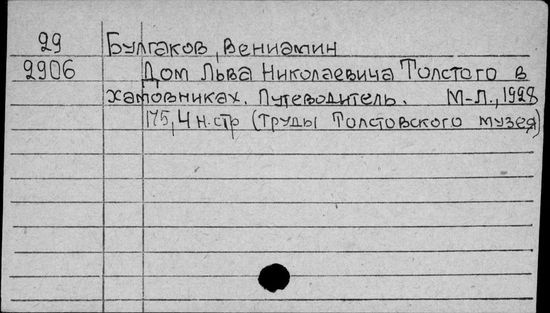 29 Булгаков, Вениамин
2906 Дом Льва Николаевича Толстого в
Хамовниках. Путеводитель. М-Л., 1928
175, 4 н.стр (Труды Толстовского музея)